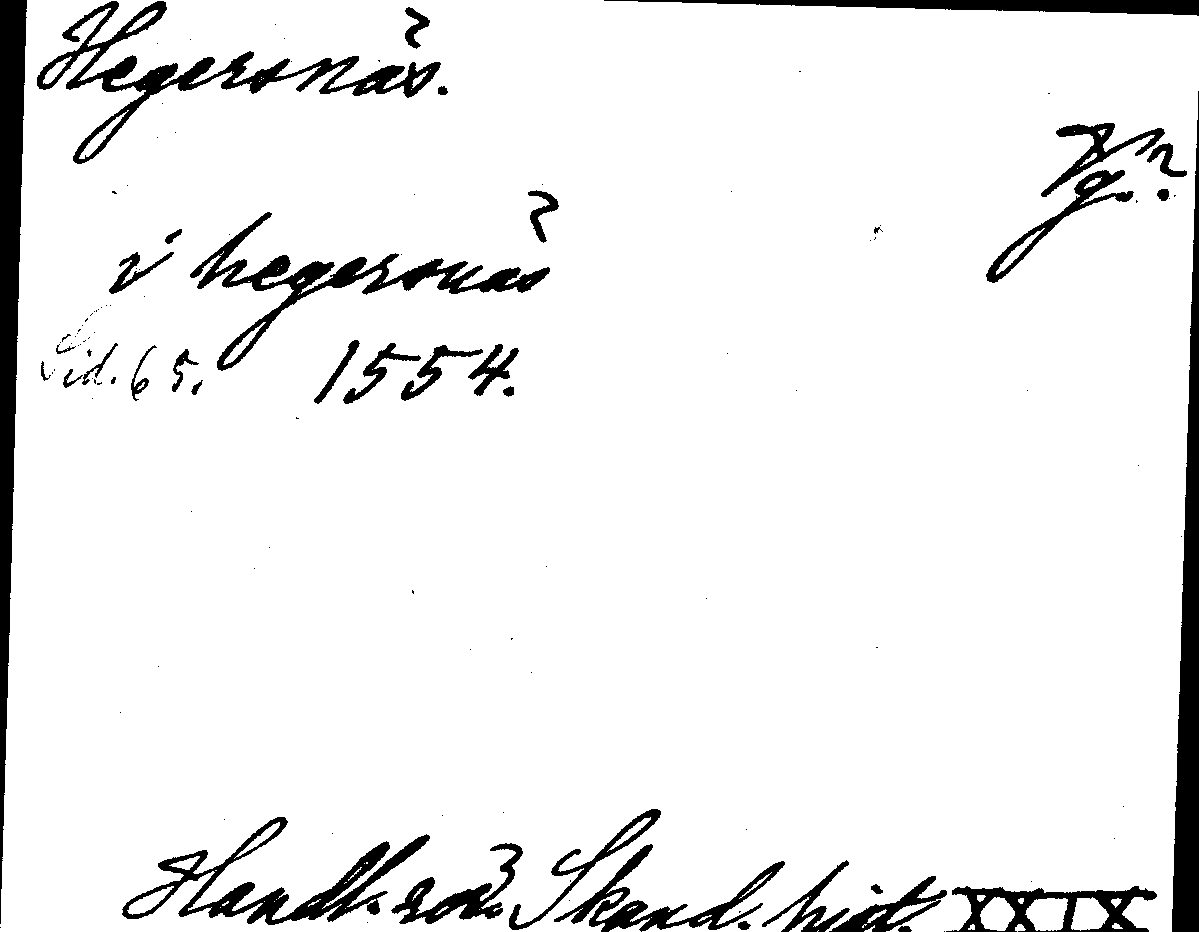 Hegersnäs.
Vg.?
i hegersnäs
Sid. 65. 1554.
Handl. rör. Skand. hist. XXIX